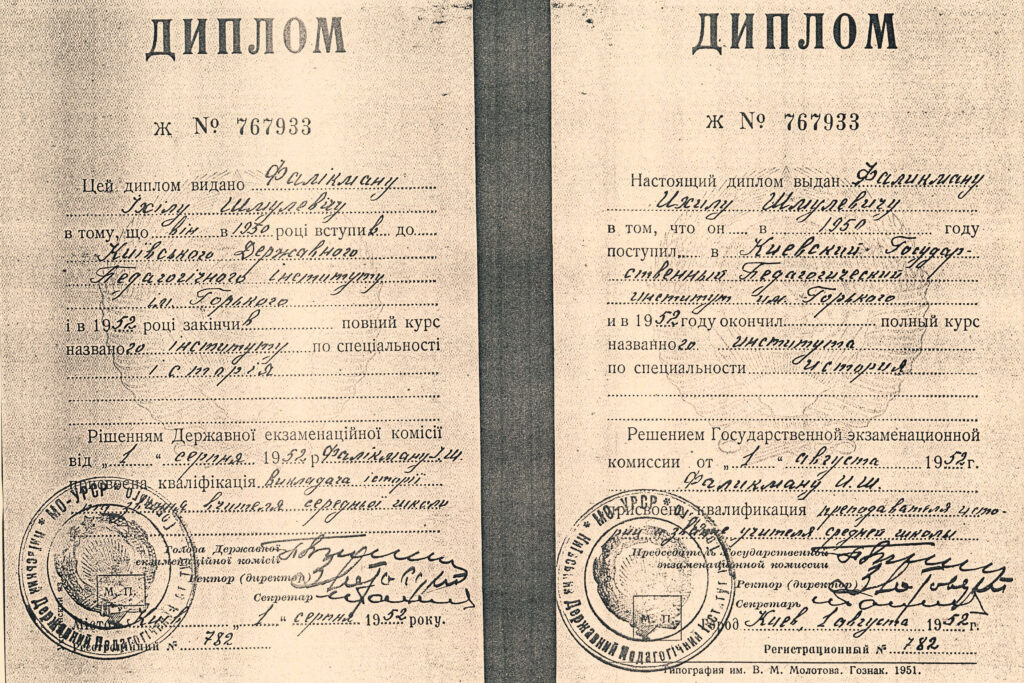 ДИПЛОМ
Ж № 767933
Цей диплом видано Фалікману
Іхілу Шмулевичу
в тому, що він в 1950 році вступив до
Київського Державного
Педагогічного інституту
ім. Горького
і в 1952 році закінчив повний курс
названого інституту по спеціальності
історія
Рішенням Державної екзаменаційної комісії
від „1“ серпня 1952 р. Фалікману І.Ш.
присвоєна кваліфікація викладача історії
звання вчителя середньої школи
Голова Державної
екзаменаційної комісії
Ректор (директор)
Секретар
М. П.
Місто Київ „1“ серпня 1952 року.
№ 782
МО-УРСР
Київський Державний Педагогічний
ДИПЛОМ
Ж № 767933
Настоящий диплом выдан Фаликману
Ихилу Шмулевичу
в том, что он в 1950 году
поступил в Киевский Государ-
ственный Педагогический
институт им. Горького
и в 1952 году окончил полный курс
названного института
по специальности история
Решением Государственной экзаменационной
комиссии от „1“ августа 1952 г.
Фаликману И.Ш.
присвоена квалификация преподавателя исто-
рии и звание учителя средней школы
Председатель Государственной
экзаменационной комиссии
Ректор (директор)
Секретарь
М. П.
Город Киев, 1 августа 1952 г.
Регистрационный № 782
МО-УРСР
Київський Державний Педагогічний
Типография им. В. М. Молотова. Гознак. 1951.